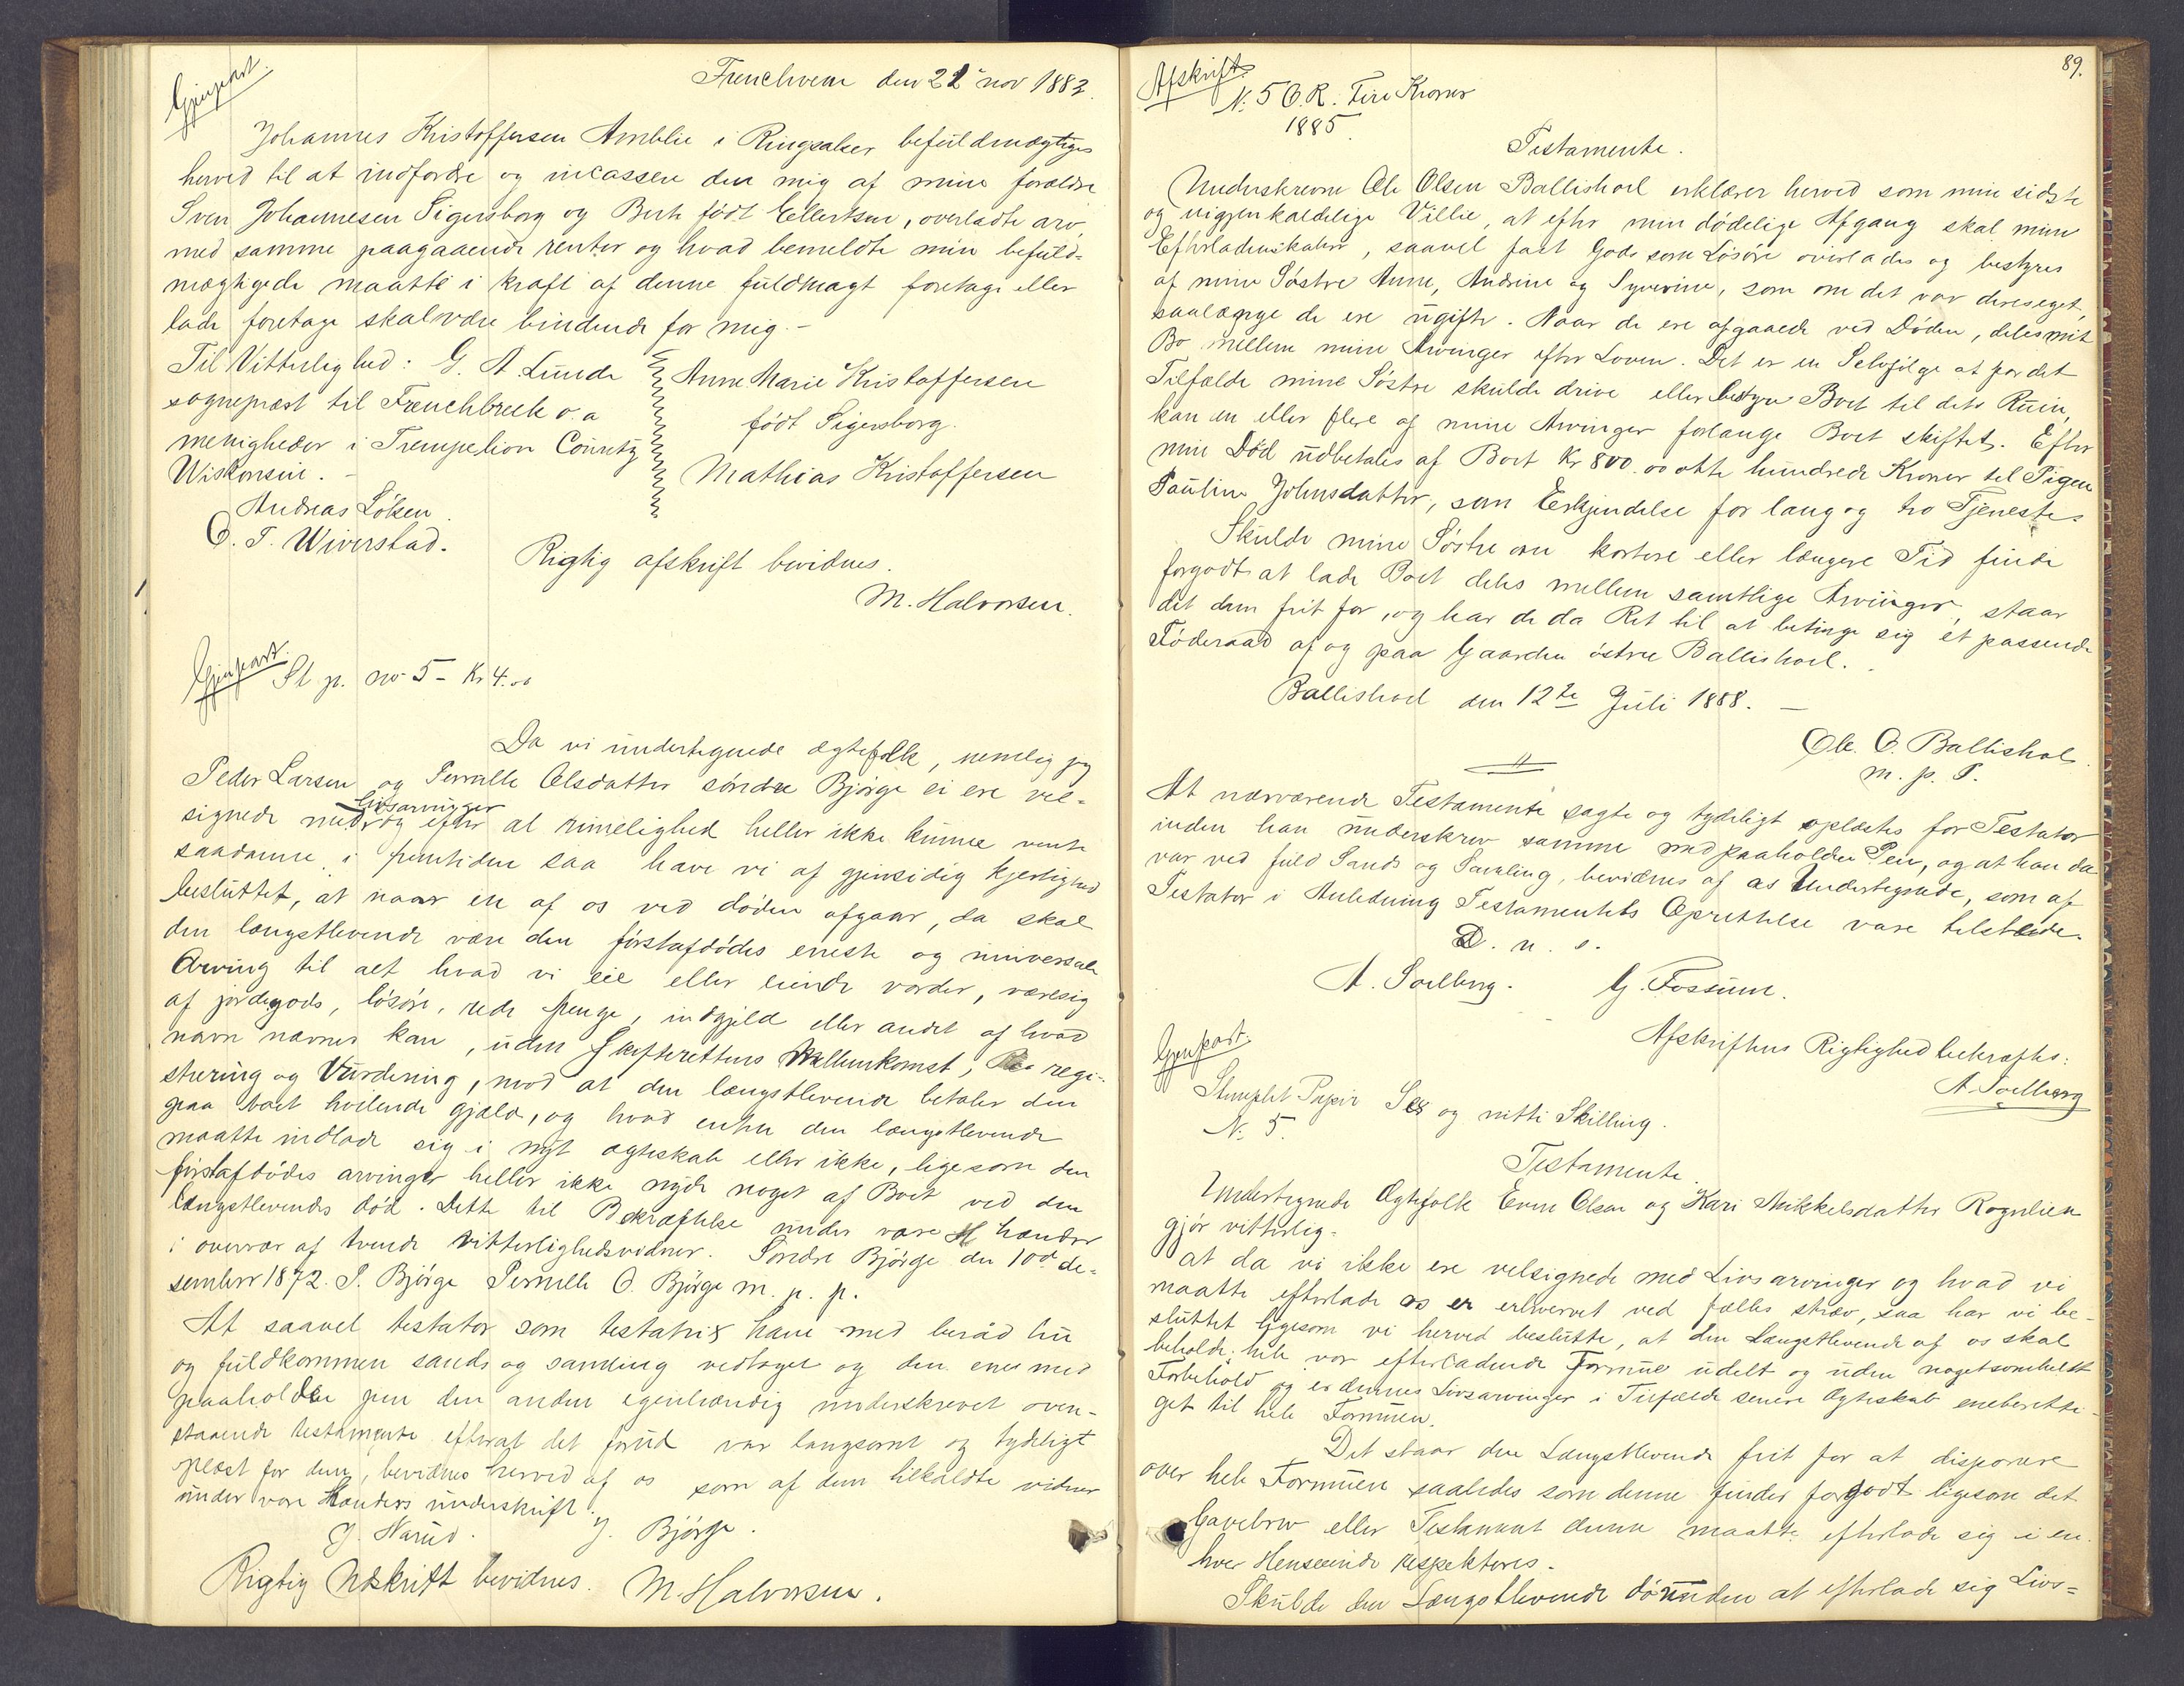 Gjenpart.
Frenchvem den 22 nov 1883.
Johannes Kristoffersen Amblie i Ringsaker befuldmægtiges
herved til at indfordre og incassere den mig af mine forældre
Sven Johannesen Sigersborg og Berte født Ellertsen, overladte arv,
med samme paagaaende renter og hvad bemeldte min befuld-
mægtigede maatte i kraft af denne fuldmagt foretage eller
lade foretage skal være bindende for mig. -
Til Vitterlighed: G. A. Lunde
sogneprest til Frenchbreek o. a
menigheder i Trempelion Countÿ
Wiskonsin. -
Andreas Lölsen.
O. T. Wiverstad.
Anne Marie Kristoffersen
født Sigersborg.
Mathias Kristoffersen
Rigtig afskrift bevidnes.
M. Halvorsen.
Gjenpart.
St. p. no 5 - Kr 4.00
Da vi undertegnede ægtefolk, nemlig jeg
Peder Larsen og Pernille Olsdatter søndre Bjørge ei ere vel-
signede med livsarvinger og efter al rimelighed heller ikke kunne vente
saadanne i fremtiden saa have vi af gjensidig kjerlighed
besluttet, at naar en af os ved døden afgaar, da skal
den længstlevende være den förstafdödes eneste og universale
Arving til alt hvad vi eie eller eiende vorder, væresig
af jordegods, lösöre, rede penge, indgjeld eller andet af hvad
navn nævnes kan, uden Skifterettens Mellemkomst, regi-
strering og Vurdering, mod at den længstlevende betaler den
paa boet hvilende gjæld, og hvad enten den længstlevende
maatte indlade sig i nyt ægteskab eller ikke, ligesom den
förstafdödes arvinger heller ikke nyde noget af Boet ved den
længstlevendes död. Dette til Bekræftelse under vore hænder
i overvær af tvende vitterlighedsvidner. Søndre Bjørge den 10de de-
sember 1872. P. Bjørge Pernille O. Bjørge m. p. p.
At saavel testator som testatrix have med beraad hu
og fuldkommen sands og samling vedtaget og den ene med
paaholden pen den anden egenhændig underskrevet oven-
staaende testamente efterat det forud var langsomt og tydeligt
oplæst for dem, bevidnes herved af os som af dem tilkaldte vidner
under vore Hænders underskrift.
J. Narud. J. Bjørge.
Rigtig Udskrift bevidnes. M. Halvorsen.
89.
Afskrift.
N. 5 C. R. Fire Kroner
1885.
Testamente.
Underskrevne Ole Olsen Ballishoel erklærer herved som min sidste
og uigjenkaldelige Villie, at efter min dödelige Afgang skal mine
Efterladenskaber, saavel fast Gods som Lösöre overlades og bestyres
af mine Söstre Anne, Andrine og Syverine, som om det var deres eget,
saalænge de ere ugifte. Naar de ere afgaaede ved Döden, deles mit
Bo mellem mine Arvinger efter Loven. Det er en Selvfölge at for det
Tilfælde mine Söstre skulde drive eller bestyre Boet til dets Ruin,
kan en eller flere af mine Arvinger forlange Boet skiftet. Efter
min Död udbetales af Boet Kr 800.00 otte hundrede Kroner til Pigen
Pauline Johnsdatter, som Erkjendelse for lang og tro Tjeneste.
Skulde mine Söstre om kortere eller længere Tid finde
forgodt at lade Boet deles mellem samtlige Arvinger, staar
det dem frit for, og har de da Ret til at betinge sig et passende
Föderaad af og paa Gaarden östre Ballishoel.
Ballishoel den 12te Juli 1888. -
Ole. O. Ballishol.
m. p. P.
At nærværende Testamente sagte og tydeligt oplæstes for Testator
inden han underskrev samme med paaholden Pen, og at han da
var ved fuld Sands og Samling, bevidnes af os Undertegnede, som af
Testator i Anledning Testamentets Oprettelse vare tilstede.
D. u. s.
A. Soelberg. G. Fossum.
Afskriftens Rigtighed bekræftes:
A. Soelberg
Gjenpart.
Stemplet Papir Sex og nitti Skilling.
N. 5.
Testamente.
Undertegnede Ægtefolk Even Olsen og Kari Mikkelsdatter Rognlien
gjör vitterlig:
at da vi ikke ere velsignede med Livsarvinger og hvad vi
maatte efterlade os er erhvervet ved fælles stræv, saa har vi be-
sluttet ligesom vi herved beslutte, at den Længstlevende af os skal
beholde hele vor efterladende Formue udelt og uden nogetsomhelst
Forbehold og er dennes Livsarvinger i Tilfælde senere Ægteskab eneberetti-
get til hele Formuen.
Det staar den Længstlevende frit for at disponere
over hele Formuen saaledes som denne finder forgodt ligesom det
Gavebrev eller Testament denne maatte efterlade sig i en-
hver Henseende respekteres.
Skulde den Længstlevende dö uden at efterlade sig Livs=